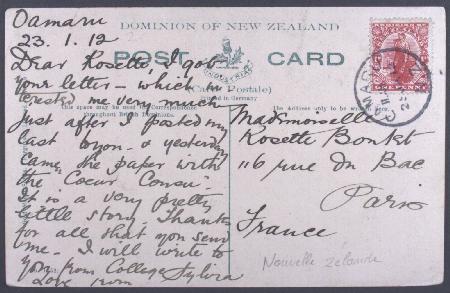 Oamaru
23. 1. 12
DOMINION OF NEW ZEALAND
POST CARD
(Carte Postale)
Printed in Germany
This space may be used for Correspondence
throughout British Dominions.
The Address only to be written here.
Dear Rosette, I got
your letter – which in
terested me very much
just after I posted my
last to you – & yesterday
came the paper with
the "Coeur
It is a very pretty
little story. Thanks
for all that you send
me. I will write to
you from College
Love from Sylvia
Mademoiselle
Rosette
116 rue du Bac
Paris
France
Nouvelle Zélande
OAMARU
ONE PENNY